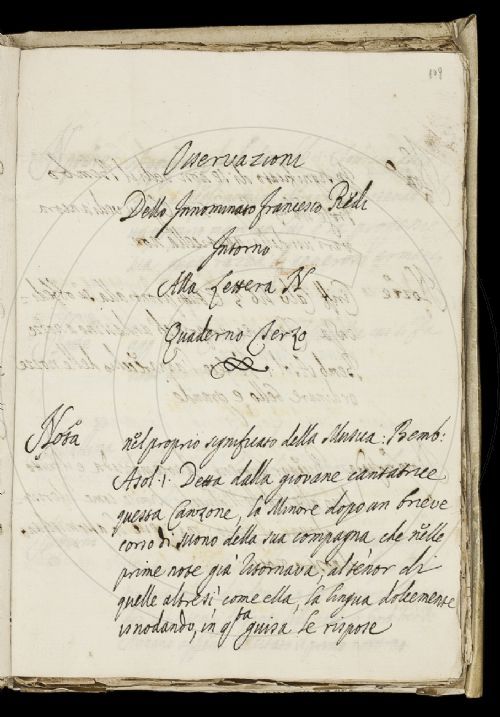 109
Osservazioni
Dello Innominato francesco Redi
Intorno
Alla Lettera N
Quaderno Terzo
Nota
nel proprio significato della Musica: Bemb:
Asol. 1. Detta dalla giovane cantatrice
questa Canzone, la Minore dopo un brieve
corso di suono della sua compagna che nelle
prime note già ritornava, al tenor di
quelle altresì come ella, la lingua dolcemente
isnodando, in qsta guisa le rispose